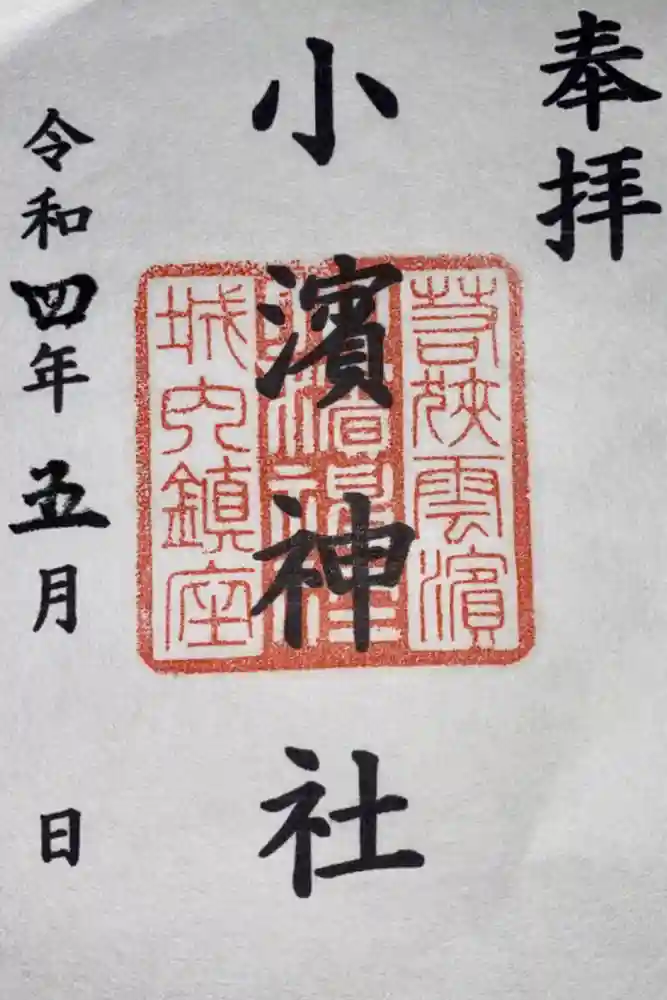 奉拝
小濱神社
若狭雲濱
小濱神社
城内鎮座
令和四年五月 日